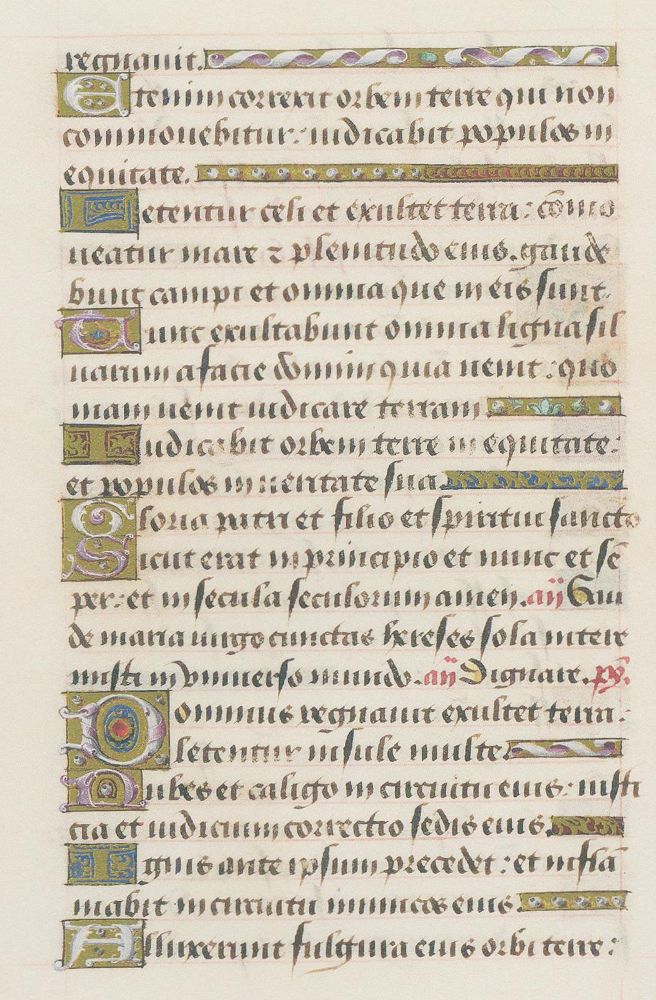 regnauit.
Etenim correxit orbem terre qui non
commouebitur: iudicabit populos in
equitate.
Letentur celi et exultet terra: cōmo
ueatur mare ⁊ plenitudo eius. gaude
bunt campi et omnia que in eis sunt.
Tunc exultabunt omnia ligna sil
uarum a facie domini quia uenit: quo
niam uenit iudicare terram
Iudicabit orbem terre in equitate:
et populos in ueritate sua.
Gloria patri et filio et spiritui sancto
Sicut erat in principio et nunc et sē
per: et in secula seculorum amen. añ Gau
de maria uirgo cunctas hereses sola intere
misti in vniuerso mundo. añ Dignare. ps̄.
Dominus regnauit exultet terra:
letentur insule multe
Nubes et caligo in circuitu eius: iusti
cia et iudicium correctio sedis eius.
Ignis ante ipsum precedet: et inflā
mabit in circuitu inimicos eius.
Alluxerunt fulgura eius orbi terre: